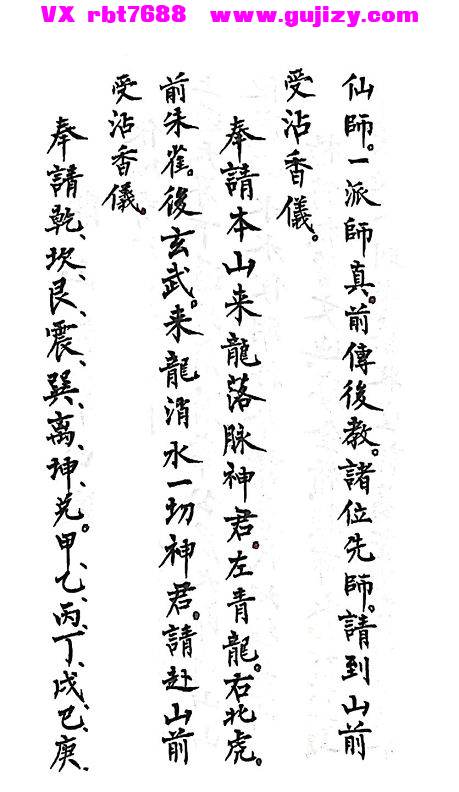 VX rbt7688 www.gujizy.com
仙師。一派師真。前傳後教。諸位先師。請到山前
受沾香儀。
奉請本山来龍落脉神君。左青龍。右北虎。
前朱雀。後玄武。来龍消水一切神君。請赴山前
受沾香儀。
奉請乾、坎、艮、震、巽、离、坤、兑。甲、乙、丙、丁、戊、巳、庚、